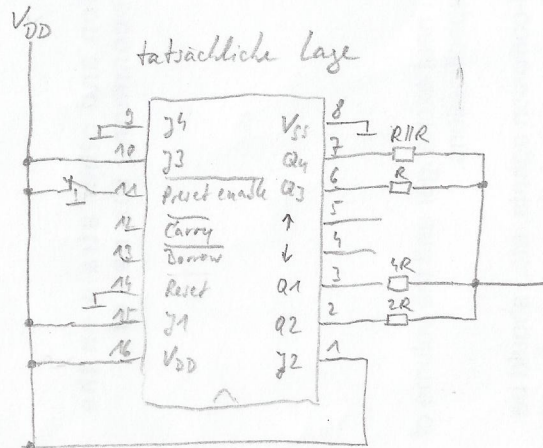 VDD
tatsächliche Lage
9 J4 VSS 8
10 J3 Q4 7 R||R
11 Preset enable Q3 6 R
12 Carry ↑ 5
13 Borrow ↓ 4
14 Reset Q1 3 4R
15 J1 Q2 2 2R
16 VDD J2 1